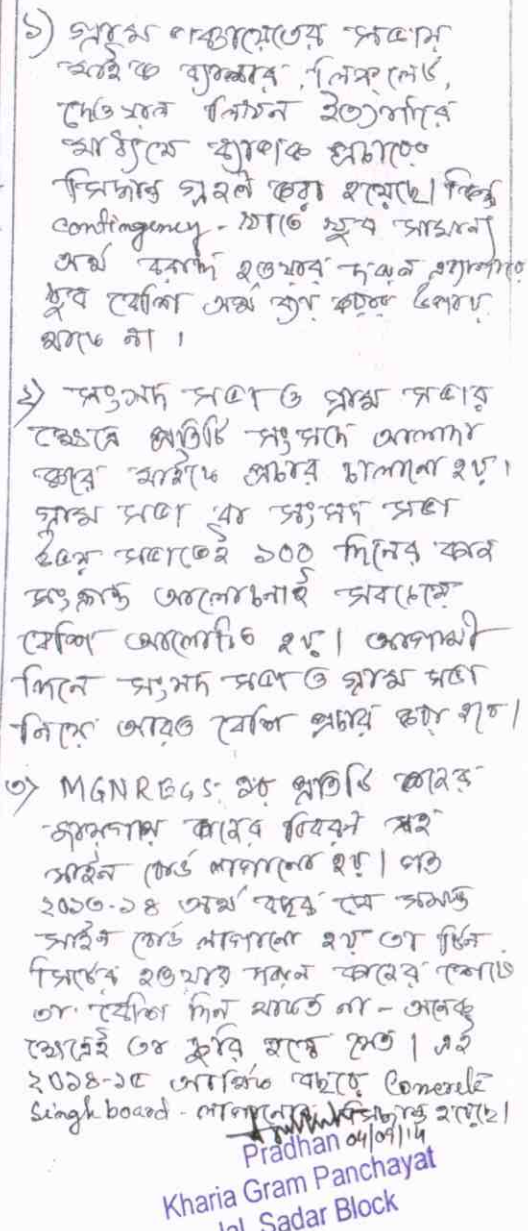 ১) গ্রাম পঞ্চায়েতের সভায়
মাইক ব্যবহার, লিফলেট,
দেওয়াল লিখন ইত্যাদির
মাধ্যমে ব্যাপক প্রচারের
সিদ্ধান্ত গ্রহণ করা হয়েছে। কিন্তু
contingency - খাতে খুব সামান্য
অর্থ বরাদ্দ হওয়ার দরুন এব্যাপারে
খুব বেশি অর্থ ব্যয় করার উপায়
থাকে না ।
২) সংসদ সভা ও গ্রাম সভার
ক্ষেত্রে প্রতিটি সংসদে আলাদা
করে মাইকে প্রচার চালানো হয়।
গ্রাম সভা বা সংসদ সভা
উভয় সভাতেই ১০০ দিনের কাজ
সংক্রান্ত আলোচনাই সবচেয়ে
বেশি আলোচিত হয়। আগামী
দিনে সংসদ সভা ও গ্রাম সভা
নিয়ে আরও বেশি প্রচার করা হবে।
৩) MGNREGS এর প্রতিটি কাজের
জায়গায় কাজের বিবরণ সহ
সাইন বোর্ড লাগানো হয়। গত
২০১৩-১৪ অর্থ বছর যে সমস্ত
সাইন বোর্ড লাগানো হয় তা টিন
সিটের হওয়ার দরুন কাজের স্পটে
তা বেশি দিন থাকত না - অনেক
ক্ষেত্রেই তা চুরি হয়ে যেত। এই
২০১৪-১৫ আর্থিক বছরে Concrete
Singh board - লাগানোর সিদ্ধান্ত হয়েছে।
04/09/14
Pradhan
Kharia Gram Panchayat
Sadar Block